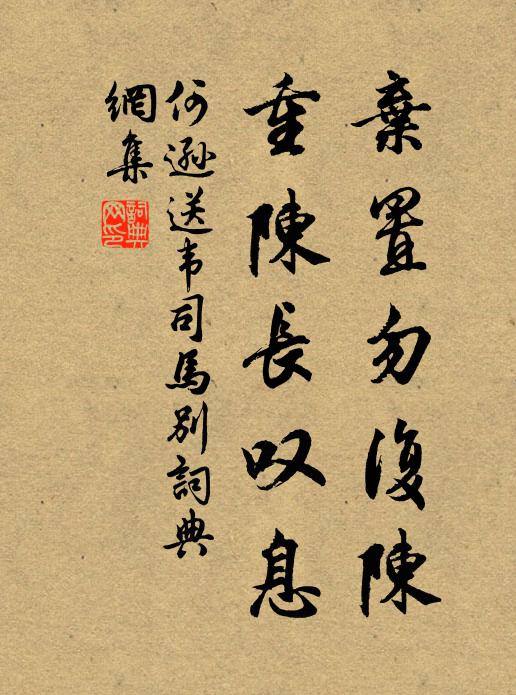 棄置勿復陳
重陳長叹息
何遜送韦司馬別詞典
網集
詞典
网印